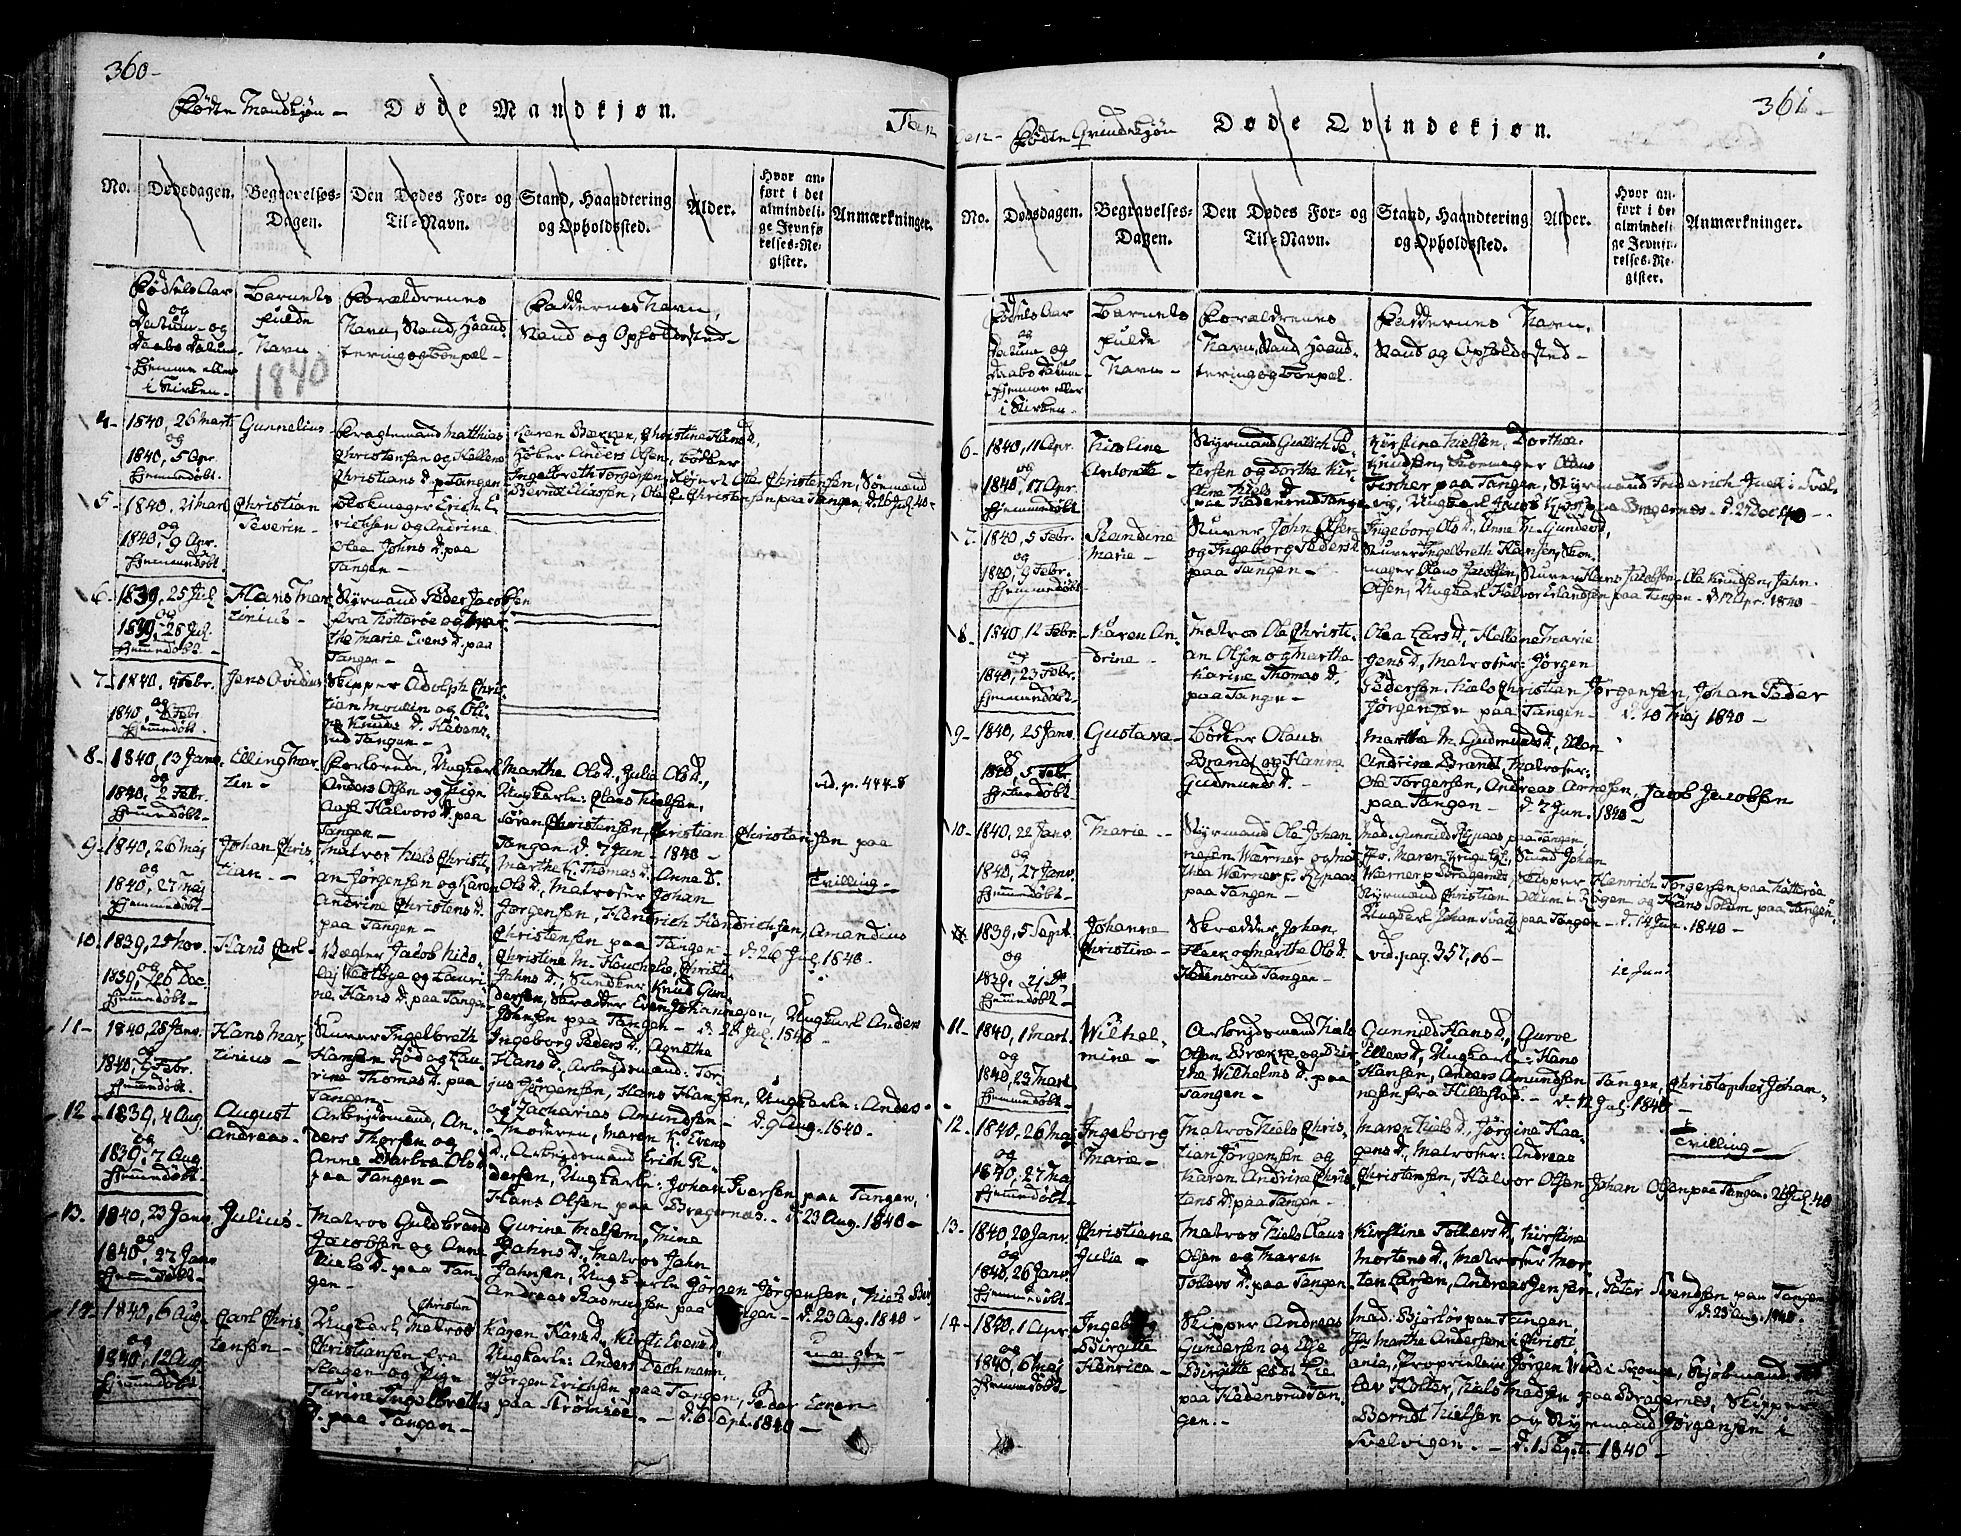 360-
Fødte Mandkjøn - Døde Mandkjøn.
Tan
No.
Dødsdagen.
Begravelses-
Dagen.
Den Dødes For- og
Til-Navn.
Stand, Haandtering
og Opholdssted.
Alder.
Hvor an-
ført i det
almindeli-
ge Jevnfø-
relses-Re-
gister.
Anmærkninger.
Fødsels Aar
og
Datum- og
Daabs Datum-
Hjemme eller
i Kirken-
Barnets
fulde
Navn
1840
Forældrenes
Navn, Stand, Haand-
tering og Bopæl-
Faddernes Navn,
Stand og Opholdssted-
4-
1840, 26 Mart
og
1840, 5 Apr.
Hjemmedøbt.
Gunnelius-
Fragtemand Matthias
Christensen og Hellene
Christians D. p Tangen
Karen Bækken, Christine Hans D.,
Anders Olsen,
Ingelbreth Torgersen, Ole Christensen, Sømmand
Bernt Eliassen, Ole Christensen paa Tangen d. 26 Jul. 40-
5-
1840, 21 Mart
og
1840, 9 Apr.
Hjemmedøbt.
Christian
Severin-
Blokmager Erich E-
richsen og Andrine
Olea Johns D. paa
Tangen-
6-
1839, 25 Jul
og
1839, 28 Jul.
Hjemmedøbt-
Hans Mar-
tinius-
Styrmand Peder Jacobsen
fra Kotterøe og Mar-
the Marie Evens D. paa
Tangen-
7-
1840, 4 Febr.
og
1840, Febr
Hjemmedøbt-
Jens Ovidius
Skipper Adolph Chris-
tian Moulin og Oli-
ne Knuds D.
Tangen-
8-
1840, 13 Janv.
og
1840, 2 Febr.
Hjemmedøbt-
Elling Mar-
tin-
Forlovede, Ungkarl
Anders Olsen og Pige
Aase Halvors D. paa
Tangen-
Marthe Ols D., Julia Ols D.,
Ungkarle: Hans Nielsen,
Søren Christensen, Christian Christensen paa
Tangen d. 7 Jun- 1840-
vid. p. 444-8
9-
1840, 26 Maj
og
1840, 27 Maj
Hjemmedøbt-
Johan Chris-
tian-
Matros Niels Christi-
an Jørgensen og Karen
Andrine Christens D.
paa Tangen-
Marthe K. Thomas D., Anne D.
Ols D., Matroser Johan
Jørgensen, Hendrich Hendrichsen, Amandius
Christensen paa Tangen- d. 26 Jul. 1840.
Tvilling-
10-
1839, 25 Nov.
og
1839, 26 Dec
Hjemmedøbt-
Hans Carl-
Vægter Jacob Nico-
laj Vestbye og Lauri-
ne Hans D. paa Tangen-
Christine M. Houchelie, Christi-
Jahns D., Knud Gun-
dersen, Skrædder Even Johannesen, Ungkarl Anders
Johnsen paa Tangen- d. 26 Jul. 1840-
11-
1840, 28 Janv.
og
1840, 9 Febr.
Hjemmedøbt-
Hans Mar-
tinius-
Stuver Ingelbreth
Hansen Fjød og Lau-
rine Thomas D. paa
Tangen-
Ingeborg Peders D., Agnethe
Hans D., Arbejdsmænd: Tor-
jus Jørgensen, Hans Hansen, Ungkarle: Anders
og Zacharias Amundsen- d. 9 Aug. 1840-
12-
1839, 4 Aug.
og
1839, 7 Aug
Hjemmedøbt-
August
Andreas-
Arbejdsmand, An-
ders Thorsen og
Anne Barbra Ols D.
paa Tangen-
Moderen, Maren K. Evens
D., Arbejdsmand Erich Pe-
dersen, Ungkarle: Johan Iversen paa Tangen,
Hans Olsen paa Bragernæs- d. 23 Aug. 1840-
13.
1840, 23 Janv
og
1840, 27 Janv
Hjemmedøbt-
Julius-
Matros Guldbrand
Jacobsen og Anne
Niels D. paa Tan-
gen-
Gurine Malsem, Mina
Jahns D., Matros Jahn
Jahnsen, Ungkarle Jørgen Jørgensen, Niels
Andreas Rasmussen paa Tangen- d. 23 Aug. 1840-
14-
1840, 6 Aug
og
1840, 12 Aug
Hjemmedøbt-
Carl Chris-
tensen-
Ungkarl Christen Matros
Christiansen fra
Skagen og Pige
Tarine Ingelbreths
D. paa Tangen-
Karen Hans D., Kirsti Evens D.,
Ungkarle: Anders Dechmann,
Jørgen Erichsen paa Tangen, Peder Larsen
paa Strømsøe- d. 6 Sept. 1840-
uægte-
361-
gen- Fødte Qvindekjøn Døde Qvindekjøn.
No.
Dødsdagen.
Begravelses-
Dagen.
Den Dødes For- og
Til-Navn.
Stand, Haandtering
og Opholdssted.
Alder.
Hvor an-
ført i det
almindeli-
ge Jevnfø-
relses-Re-
gister.
Anmærkninger.
Fødsels Aar
og
Datum og
Daabs Datum-
Hjemme eller
i Kirken-
Barnets
fulde
Navn-
Forældrenes
Navn, Stand, Haand-
tering og Bopæl.
Faddernes Navn,
Stand og Opholdssted-
6-
1840, 11 Apr.
og
1840, 17 Apr.
Hjemmedøbt
Nicoline
Antonette-
Styrmand Pe-
tersen og Dorthe Kir-
stine Niels D.
paa Hedensrud Tangen
Kirstine Nielsen, Dorthea
Knudsen, Skomager Olaus
Fischer paa Tangen, Styrmand Friderich Juel i Svel-
vig, Ungkarl Jacob paa Bragernes- d. 27 Dec. 40-
7.
1840, 5 Febr.
og
1840, 9 Febr.
Hjemmedøbt-
Randine
Marie-
Stuver John Olsen
og Ingeborg Peders D.
paa Tangen-
Ingeborg Ols D., Anne M. Gunders D.,
Stuver Ingelbreth Hansen, Sko-
mager Olaus Jacobsen, Stuver Hans Jacobsen- Ole Knudsen, Jahn
Olsen, Ungkarl Halvor Erlandsen paa Tangen- d. 12 Apr. 1840-
8-
1840, 12 Febr.
og
1840, 23 Febr
Hjemmedøbt-
Karen An-
drine-
Matros Ole Christi-
an Olsen og Marthe
Karine Thomas D.
paa Tangen-
Olea Lars D., Hellene Marie
Jens D., Matroser: Jørgen
Pedersen, Niels Christian Jørgensen, Johan Peder
Jørgensen paa Tangen- d. 10 Maj 1840-
9-
1840, 25 Janv.
og
1840, 5 Febr.
Hjemmedøbt-
Gustava-
Bødker Olaus
Brandt og Hanna
Gudmunds D.-
Marthe M. Gudmunds D., Ellen
Andrine Brandt, Matroser:
Ole Torgersen, Andreas Arnesen, Jacob Jacobsen
paa Tangen- d. 7 Jun. 1840-
10-
1840, 22 Janv.
og
1840, 27 Janv.
Hjemmedøbt-
Marie-
Styrmand Ole Johan-
nesen Wærner og Mar-
tha Wærner f. Rypaas
paa Tangen-
Mad. Gunnild Rypaas paa Tangen,
Jfr. Maren Johan
Wærner p Bragernes, Skipper Henrich Torgersen paa Kotterøe
Styrmand Christian Ollum i Røgen og Hans Solum paa Tangen,
Ungkarl Johan Svartz paa Tangen- d. 14 Jun. 1840-
1839, 5 Sept.
og
1839, 21 D
Hjemmedøbt-
Johanne
Christine-
Skrædder Johan
Fleek og Marthe Ols D.
Hedensrud Tangen-
vid. pag. 357, 16-
12 Jun.
11-
1840, 1 Mart.
og
1840, 23 Mart
Hjemmedøbt-
Wilhel-
mine-
Arbejdsmand Niels
Olsen Brække og Ber-
the Wilhelms D. paa
Tangen-
Gunnild Hans D., Gurve
Ellers D., Ungkarle: Hans
Hansen, Anders Amundsen Tangen, Christopher Johan-
nesen fra Hillestad.- d. 12 Jul. 1840-
12-
1840, 26 Maj
og
1840, 27 Maj
Hjemmedøbt-
Ingeborg
Marie-
Matros Niels Chris-
tian Jørgensen og
Karen Andrine Chris-
tens D. paa Tangen-
Maren Niels D., Jørgine Haa-
gens D., Matroser: Andreas
Christensen, Halvor Olsen, Johan Olsen paa Tangen- 26 Jul. 40
Tvilling-
13-
1840, 20 Janv.
og
1840, 26 Janv.
Hjemmedøbt-
Christiane
Julia-
Matros Niels Olaus
Olsen og Maren
Tolevs D. paa Tangen-
Kirstine Tollevs D., Kirstine
Mortens D., Matroser Mor-
ten Larsen, Andreas Jensen, Peter Svendsen paa Tangen
d. 23 Aug. 1840.
14-
1840, 1 Apr
og
1840, 6 Maj
Hjemmedøbt-
Ingeborg
Birgitte
Henrica-
Skipper Andreas
Gundersen og Else
Birgitte født Lie
paa Hedensrud Tan-
gen.-
Mad. Bjørløv paa Tangen,
Jfr. Marthe Andersen i Christi-
ania, Proprietair Jørgen Wold i Skouge, Kjøbmænd:
ter Holter, Niels Madsen paa Bragernes, Skipper
Berndt Nielsen og Styrmand Jørgensen i
Svelvigen.- d. 1 Sept. 1840-